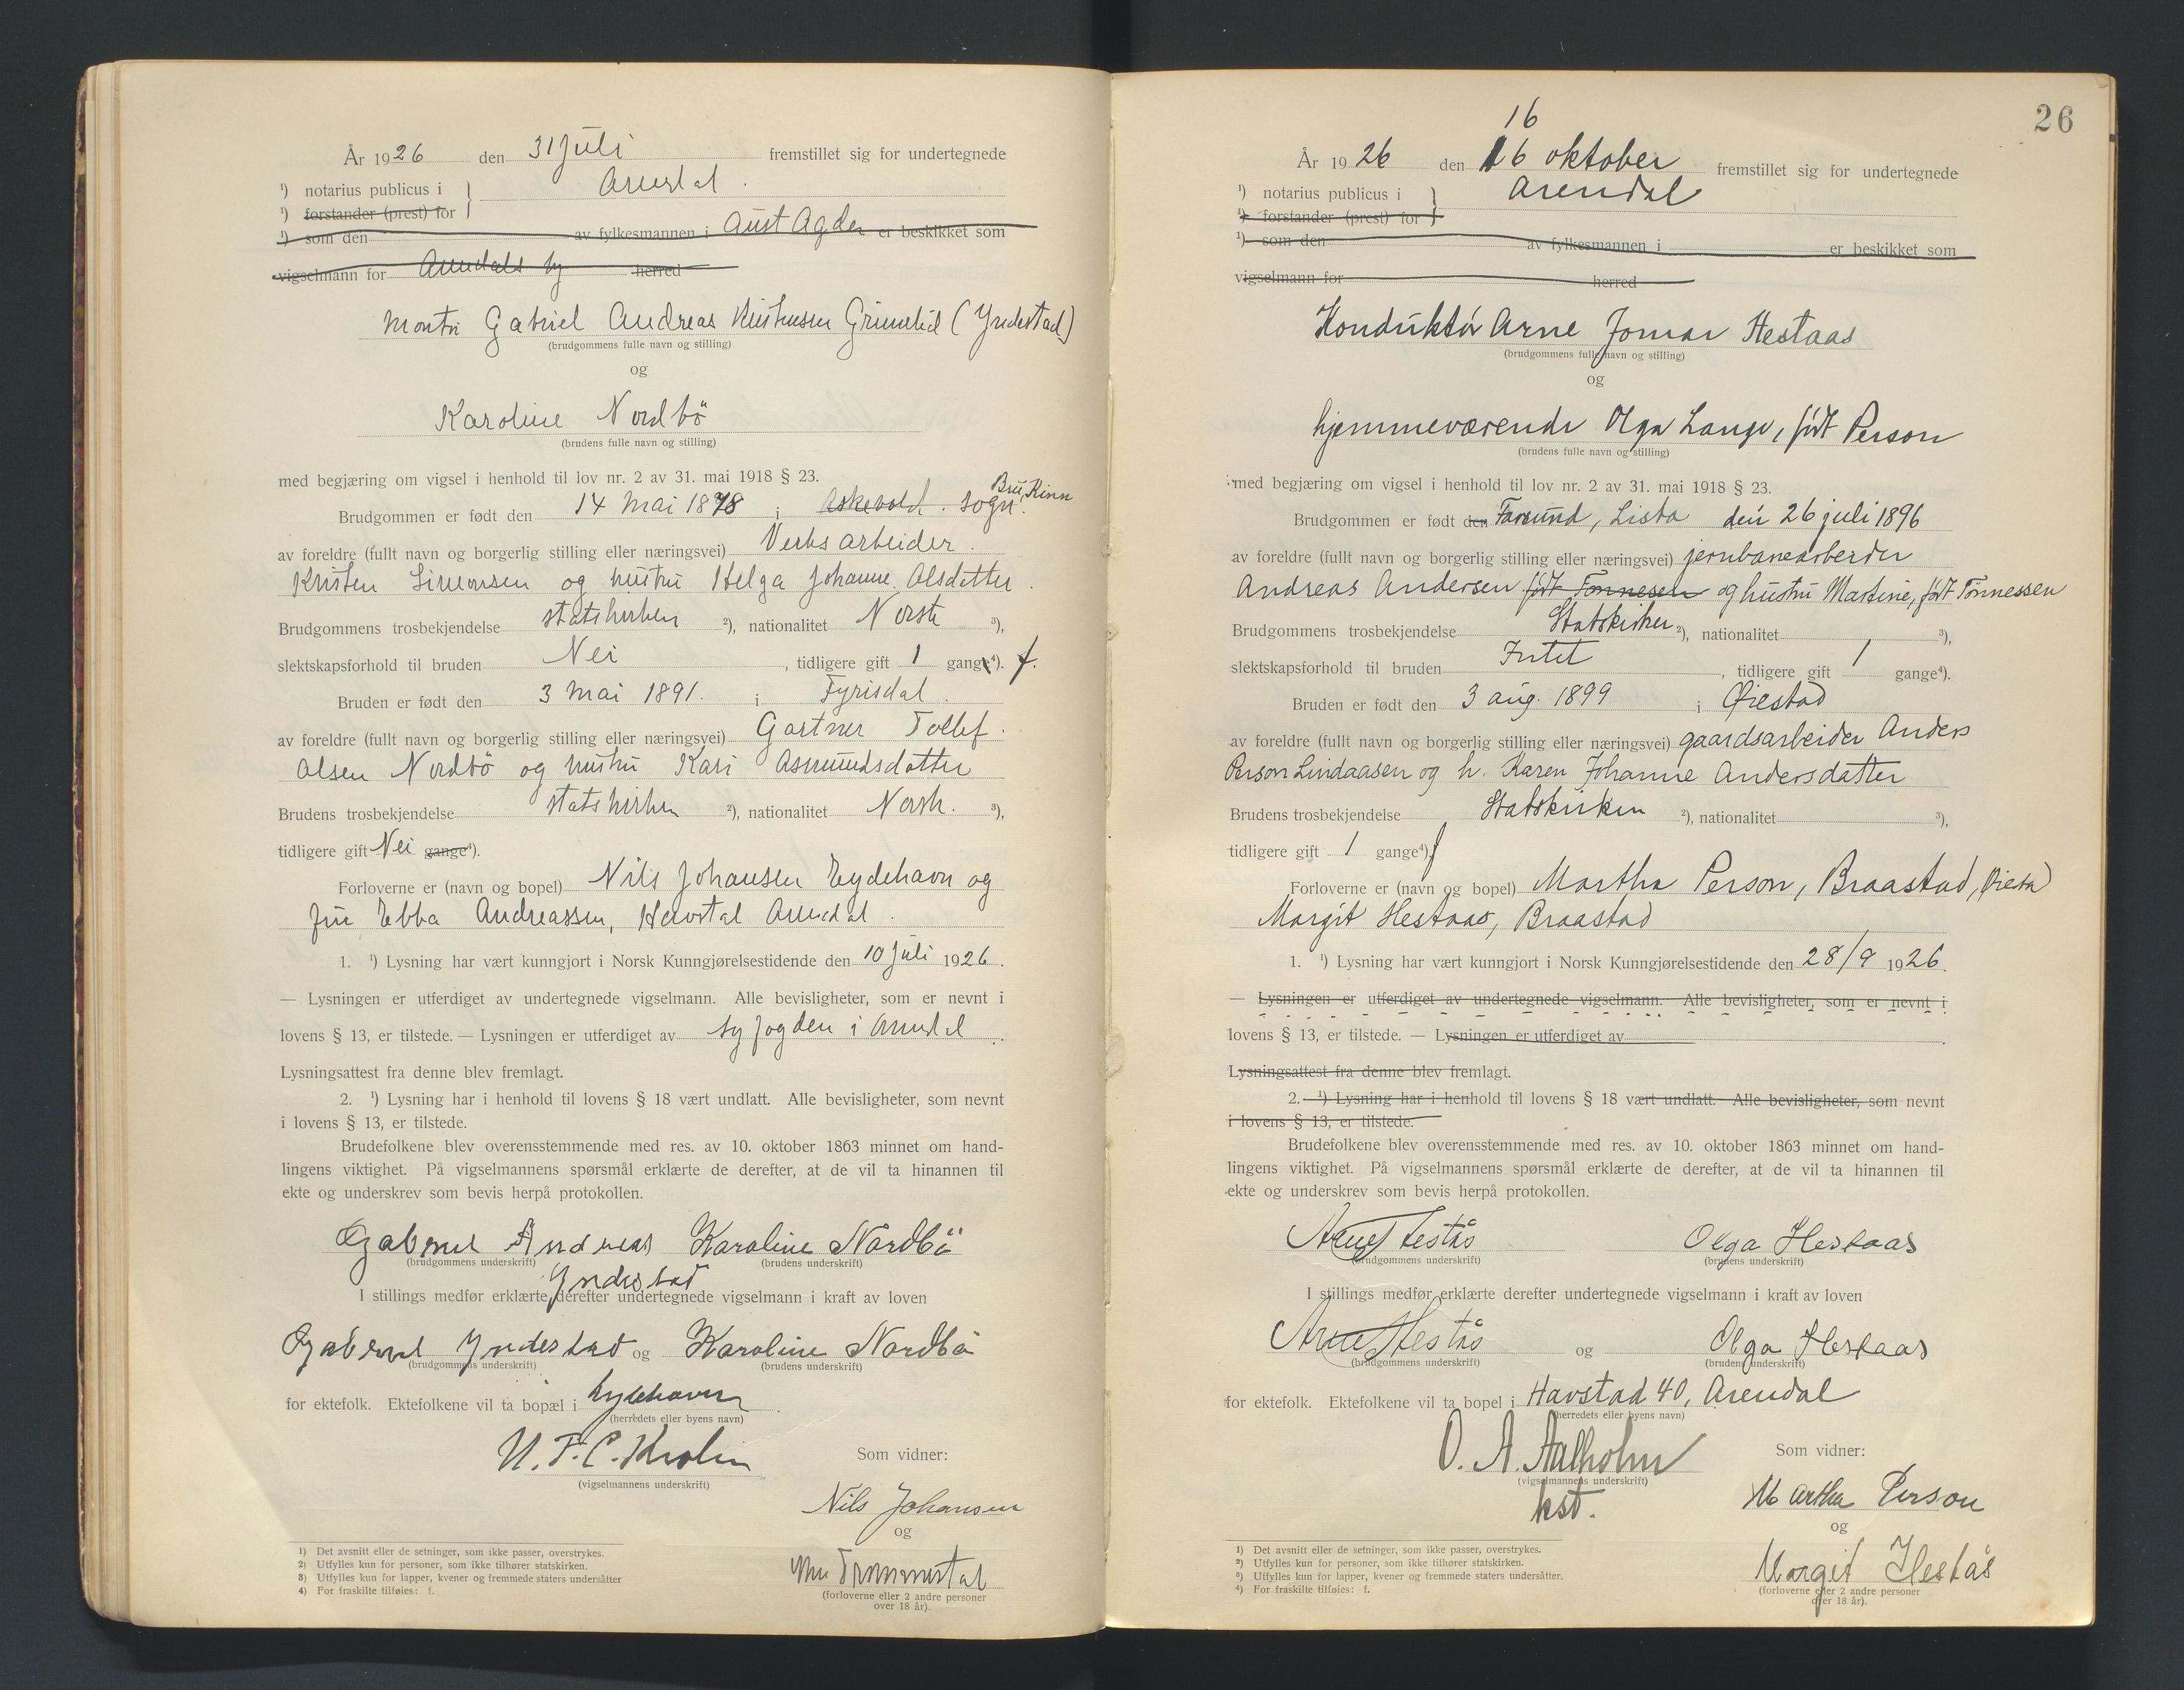 År 1926 den 31 Juli fremstillet sig for undertegnede
¹) notarius publicus i
Arendal.
¹) forstander (prest) for
¹) som den av fylkesmannen i Aust Agder er beskikket som
vigselmann for Arendals by herred
Montør Gabriel Andreas Kristensen Grimelid (Yndestad)
(brudgommens fulle navn og stilling)
og
Karoline Nordbö
(brudens fulle navn og stilling)
med begjæring om vigsel i henhold til lov nr. 2 av 31. mai 1918 § 23.
Bru, Kinn
Brudgommen er født den 14 Mai 1878 i Askevold. sogn.
av foreldre (fullt navn og borgerlig stilling eller næringsvei) Verksarbeider.
Kristen Simonsen og hustru Helga Johanne Olsdatter.
Brudgommens trosbekjendelse statskirken ²), nationalitet Norsk ³),
slektskapsforhold til bruden Nei, tidligere gift 1 gange⁴). f.
Bruden er født den 3 Mai 1891. i Fyrisdal.
av foreldre (fullt navn og borgerlig stilling eller næringsvei) Gartner Tollef
Olsen Nordbö og hustru Kari Asmundsdatter
Brudens trosbekjendelse statskirken ²), nationalitet Norsk. ³),
tidligere gift Nei gange⁴).
Forloverne er (navn og bopel) Nils Johansen Eydehavn og
fru Ebba Andreassen, Havstad Arendal.
1. ¹) Lysning har vært kunngjort i Norsk Kunngjørelsestidende den 10 Juli 1926.
— Lysningen er utferdiget av undertegnede vigselmann. Alle bevisligheter, som er nevnt i
lovens § 13, er tilstede. — Lysningen er utferdiget av byfogden i Arendal.
Lysningsattest fra denne blev fremlagt.
2. ¹) Lysning har i henhold til lovens § 18 vært undlatt. Alle bevisligheter, som nevnt
i lovens § 13, er tilstede.
Brudefolkene blev overensstemmende med res. av 10. oktober 1863 minnet om hand-
lingens viktighet. På vigselmannens spørsmål erklærte de derefter, at de vil ta hinannen til
ekte og underskrev som bevis herpå protokollen.
Gabriel Andreas Karoline Nordbö
(brudgommens underskrift) (brudens underskrift)
Yndestad
I stillings medfør erklærte derefter undertegnede vigselmann i kraft av loven
Gabriel Yndestad og Karoline Nordbö
(brudgommens underskrift) (brudens underskrift)
for ektefolk. Ektefolkene vil ta bopæl i Eydehavn.
(herredets eller byens navn)
Som vidner:
(vigselmannens underskrift)
Nils Johansen
og
(forloverne eller 2 andre personer
over 18 år).
1) Det avsnitt eller de setninger, som ikke passer, overstrykes.
2) Utfylles kun for personer, som ikke tilhører statskirken.
3) Utfylles kun for lapper, kvener og fremmede staters undersåtter
4) For fraskilte tilføies: f.
26
16
År 1926 den 16 oktober fremstillet sig for undertegnede
¹) notarius publicus i
Arendal
¹) forstander (prest) for
¹) som den av fylkesmannen i er beskikket som
vigselmann for herred
Konduktör Arne Jomar Hestaas
(brudgommens fulle navn og stilling)
og
hjemmeværende Olga Lange, født Person
(brudens fulle navn og stilling)
med begjæring om vigsel i henhold til lov nr. 2 av 31. mai 1918 § 23.
Brudgommen er født den Farsund, Lista den 26 juli 1896
av foreldre (fullt navn og borgerlig stilling eller næringsvei) jernbanearbeider
Andreas Andersen født Tønnesen og hustru Martine, født Tønnessen
Brudgommens trosbekjendelse Statskirken ²), nationalitet ³),
slektskapsforhold til bruden Intet, tidligere gift 1 gange⁴).
Bruden er født den 3 aug. 1899 i Øiestad
av foreldre (fullt navn og borgerlig stilling eller næringsvei) gaardsarbeider Anders
Person Lindaasen og h. Karen Johanne Andersdatter
Brudens trosbekjendelse Statskirken ²), nationalitet ³),
tidligere gift 1 gange⁴) f
Forloverne er (navn og bopel) Martha Person, Braastad, Øiestad
Margit Hestaas, Braastad
1. ¹) Lysning har vært kunngjort i Norsk Kunngjørelsestidende den 28/9 1926.
— Lysningen er utferdiget av undertegnede vigselmann. Alle bevisligheter, som er nevnt i
lovens § 13, er tilstede. — Lysningen er utferdiget av.
Lysningsattest fra denne blev fremlagt.
2. ¹) Lysning har i henhold til lovens § 18 vært undlatt. Alle bevisligheter, som nevnt
i lovens § 13, er tilstede.
Brudefolkene blev overensstemmende med res. av 10. oktober 1863 minnet om hand-
lingens viktighet. På vigselmannens spørsmål erklærte de derefter, at de vil ta hinannen til
ekte og underskrev som bevis herpå protokollen.
Arne Hestås Olga Hestaas
(brudgommens underskrift) (brudens underskrift)
I stillings medfør erklærte derefter undertegnede vigselmann i kraft av loven
Arne Hestås og Olga Hestaas
(brudgommens underskrift) (brudens underskrift)
for ektefolk. Ektefolkene vil ta bopel i Havstad 40, Arendal
(herredets eller byens navn)
O. A. Aalholm Som vidner:
(vigselmannens underskrift)
kst.
Martha Person
og
Margit Hestås
(forloverne eller 2 andre personer
over 18 år).
1) Det avsnitt eller de setninger, som ikke passer, overstrykes.
2) Utfylles kun for personer, som ikke tilhører statskirken.
3) Utfylles kun for lapper, kvener og fremmede staters undersåtter.
4) For fraskilte tilføies: f.